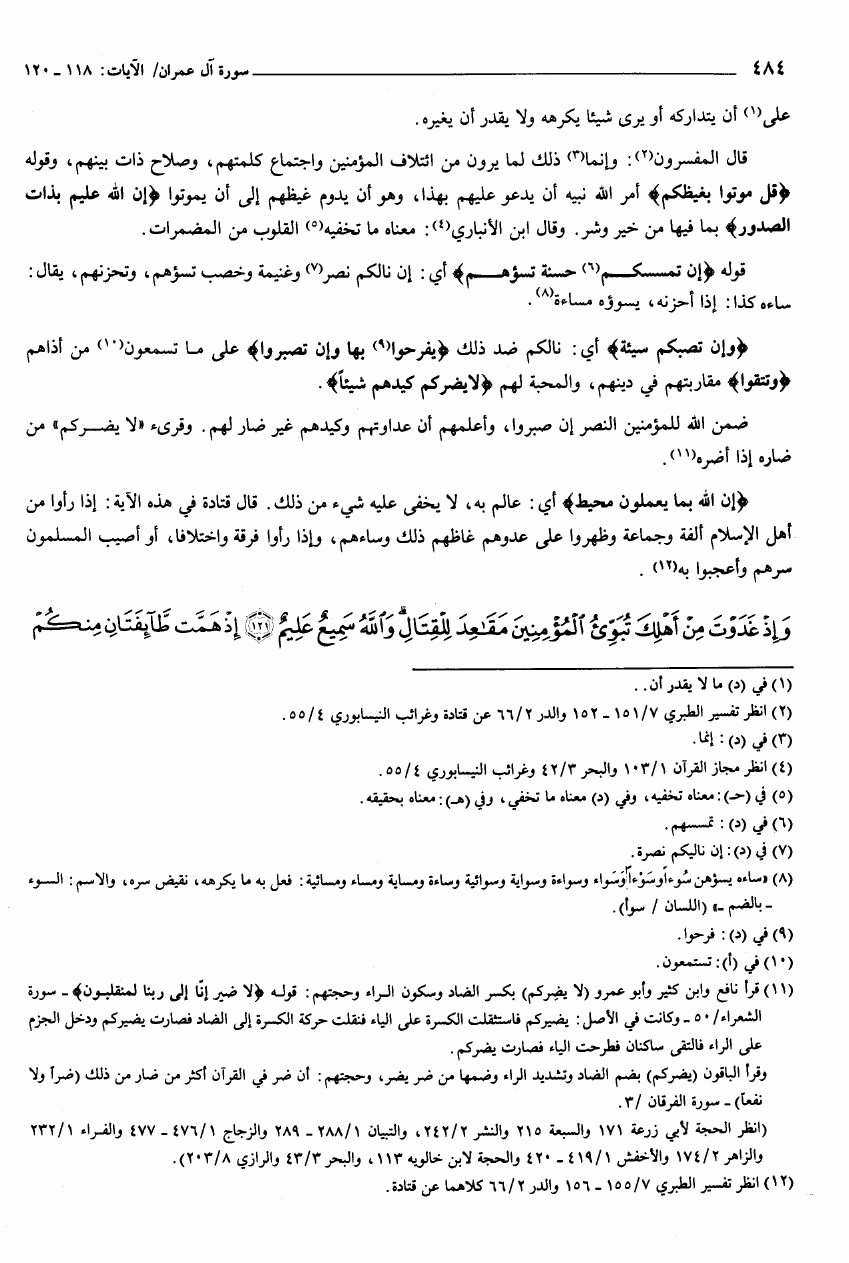 ٤٨٤ سورة آل عمران/ الآيات: ١١٨ ـ ١٢٠
على(١) أن يتداركه أو يرى شيئا يكرهه ولا يقدر أن يغيره.
قال المفسرون(٢): وإنما(٣) ذلك لما يرون من ائتلاف المؤمنين واجتماع كلمتهم، وصلاح ذات بينهم، وقوله
﴿قل موتوا بغيظكم﴾ أمر الله نبيه أن يدعو عليهم بهذا، وهو أن يدوم غيظهم إلى أن يموتوا ﴿إن الله عليم بذات
الصدور﴾ بما فيها من خير وشر. وقال ابن الأنباري(٤): معناه ما تخفيه(٥) القلوب من المضمرات.
قوله ﴿إن تمسسكم(٦) حسنة تسؤهم﴾ أي: إن نالكم نصر(٧) وغنيمة وخصب تسؤهم، وتحزنهم، يقال:
ساءه كذا: إذا أحزنه، يسوؤه مساءة(٨).
﴿وإن تصبكم سيئة﴾ أي: نالكم ضد ذلك ﴿يفرحوا(٩) بها وإن تصبروا﴾ على ما تسمعون(١٠) من أذاهم
﴿وتتقوا﴾ مقاربتهم في دينهم، والمحبة لهم ﴿لايضركم كيدهم شيئاً﴾.
ضمن الله للمؤمنين النصر إن صبروا، وأعلمهم أن عداوتهم وكيدهم غير ضار لهم. وقرىء «لا يضركم» من
ضاره إذا أضره(١١).
﴿إن الله بما يعملون محيط﴾ أي: عالم به، لا يخفى عليه شيء من ذلك. قال قتادة في هذه الآية: إذا رأوا من
أهل الإسلام ألفة وجماعة وظهروا على عدوهم غاظهم ذلك وساءهم، وإذا رأوا فرقة واختلافا، أو أصيب المسلمون
سرهم وأعجبوا به(١٢).
وَإِذْ غَدَوْتَ مِنْ أَهْلِكَ تُبَوِّئُ ٱلْمُؤْمِنِينَ مَقَـٰعِدَ لِلْقِتَالِ ۗ وَٱللَّهُ سَمِيعٌ عَلِيمٌ ١٢١ إِذْ هَمَّت طَّآئِفَتَانِ مِنكُمْ
(١) في (د) ما لا يقدر أن..
(٢) انظر تفسير الطبري ١٥١/٧ ـ ١٥٢ والدر ٦٦/٢ عن قتادة وغرائب النيسابوري ٥٥/٤.
(٣) في (د): إنما.
(٤) انظر مجاز القرآن ١٠٣/١ والبحر ٤٢/٣ وغرائب النيسابوري ٥٥/٤.
(٥) في (حـ): معناه تخفيه، وفي (د) معناه ما تخفي، وفي (هـ): معناه بحقيقه.
(٦) في (د): تمسسهم.
(٧) في (د): إن ناليكم نصرة.
(٨) «ساءه يسؤهن سُوءاً وسَوْءاً وسَواء وسواءة وسواية وسوائية وساءة ومساية ومساء ومسائية: فعل به ما يكرهه، نقيض سره، والاسم: السوء
ـ بالضم ـ» (اللسان / سوأ).
(٩) في (د): فرحوا.
(١٠) في (أ): تستمعون.
(١١) قرأ نافع وابن كثير وأبو عمرو (لا يضِركم) بكسر الضاد وسكون الراء وحجتهم: قوله ﴿لا ضير إنّا إلى ربنا لمنقلبون﴾ ـ سورة
الشعراء/٥٠ ـ وكانت في الأصل: يضيركم فاستثقلت الكسرة على الياء فنقلت حركة الكسرة إلى الضاد فصارت يضيركم ودخل الجزم
على الراء فالتقى ساكنان فطرحت الياء فصارت يضركم.
وقرأ الباقون (يضركم) بضم الضاد وتشديد الراء وضمها من ضر يضر، وحجتهم: أن ضر في القرآن أكثر من ضار من ذلك (ضراً ولا
نفعاً) ـ سورة الفرقان /٣.
(انظر الحجة لأبي زرعة ١٧١ والسبعة ٢١٥ والنشر ٢٤٢/٢، والتبيان ٢٨٨/١ ـ ٢٨٩ والزجاج ٤٧٦/١ ـ ٤٧٧ والفراء ٢٣٢/١
والزاهر ١٧٤/٢ والأخفش ٤١٩/١ ـ ٤٢٠ والحجة لابن خالويه ١١٣، والبحر ٤٣/٣ والرازي ٢٠٣/٨).
(١٢) انظر تفسير الطبري ١٥٥/٧ ـ ١٥٦ والدر ٦٦/٢ كلاهما عن قتادة.